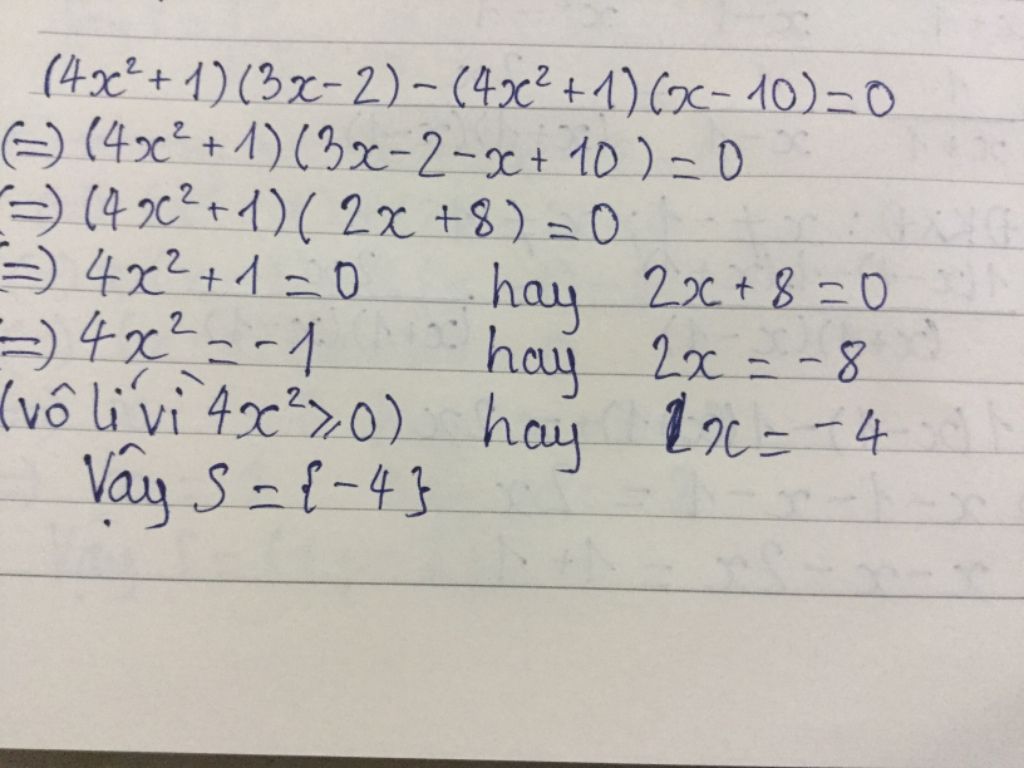 (4x² + 1)(3x - 2) - (4x² + 1)(x - 10) = 0
(=) (4x² + 1)(3x - 2 - x + 10) = 0
(=) (4x² + 1)( 2x + 8) = 0
(=) 4x² + 1 = 0 hay 2x + 8 = 0
(=) 4x² = -1 hay 2x = -8
(vô lí vì 4x² ⩾ 0) hay x = -4
Vậy S = {-4}